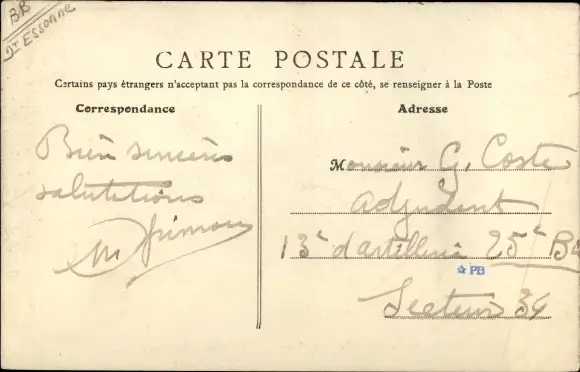 BB
Dt ESSONNE
CARTE POSTALE
Certains pays étrangers n'acceptant pas la correspondance de ce côté, se renseigner à la Poste
Correspondance
Bien sincères
salutations
Adresse
Monsieur G. Coste
adjudant
13e d'artillerie 25e Bie
PB
Secteur 34